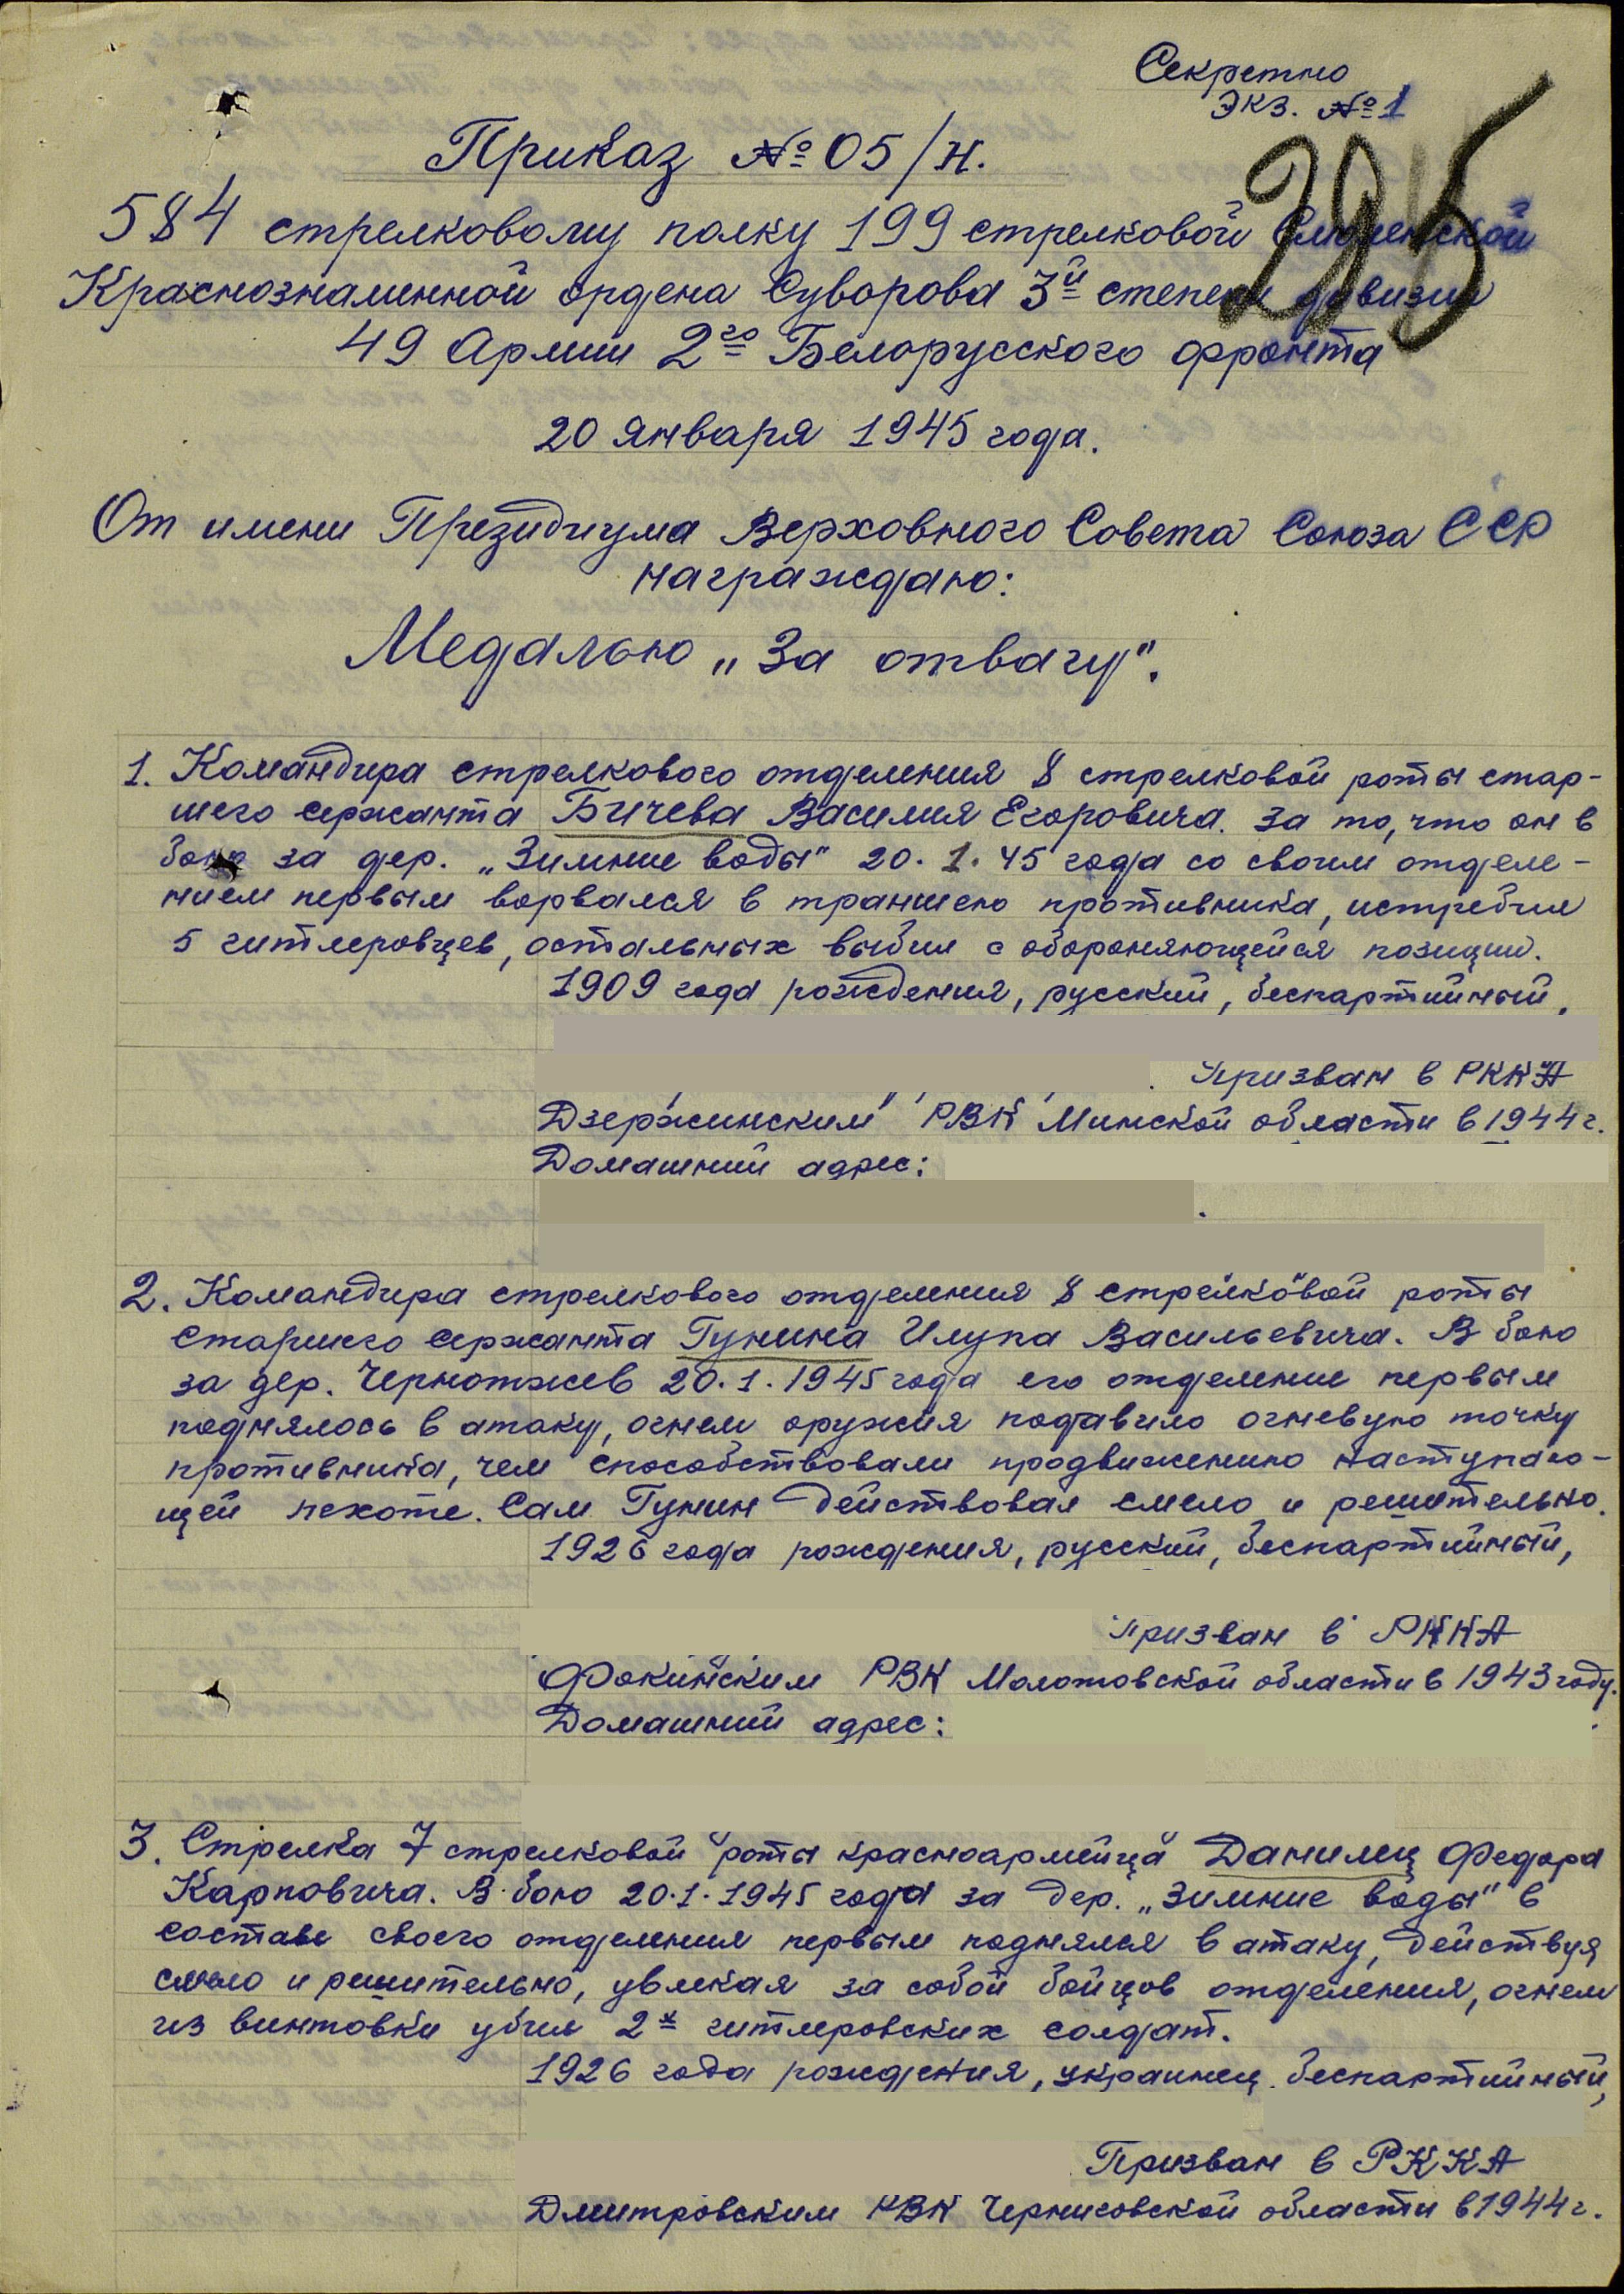 Секретно
Экз. №1
295
Приказ №05/н.
584 стрелковому полку 199 стрелковой Смоленской
Краснознаменной ордена Суворова 3й степени дивизии
49 Армии 2го Белорусского фронта
20 января 1945 года.
От имени Президиума Верховного Совета Союза ССР
награждаю:
Медалью „За отвагу".
1. Командира стрелкового отделения 8 стрелковой роты стар-
шего сержанта Бычева Василия Егоровича. за то, что он в
бою за дер. „Зимние воды" 20.1.45 года со своим отделе-
нием первым ворвался в траншею противника, истребил
5 гитлеровцев, остальных выбил с обороняющейся позиции.
1909 года рождения, русский, беспартийный,
Призван в РККА
Дзержинским РВК Минской области в 1944г.
Домашний адрес:
2. Командира стрелкового отделения 8 стрелковой роты
старшего сержанта Гунина Илупа Васильевича. В бою
за дер. Чернотжев 20.1.1945 года его отделение первым
поднялось в атаку, огнем оружия подавило огневую точку
противника, чем способствовали продвижению наступаю-
щей пехоте. Сам Гунин действовал смело и решительно.
1926 года рождения, русский, беспартийный,
Призван в РККА
Фокинским РВК Молотовской области в 1943 году.
Домашний адрес:
3. Стрелка 7 стрелковой роты красноармейца Данилец Федора
Карповича. В бою 20.1.1945 года за дер. „Зимние воды" в
составе своего отделения первым поднялся в атаку, действуя
смело и решительно, увлекая за собой бойцов отделения, огнем
из винтовки убил 2х гитлеровских солдат.
1926 года рождения, украинец, беспартийный,
Призван в РККА
Дмитровским РВК Черниговской области в 1944г.